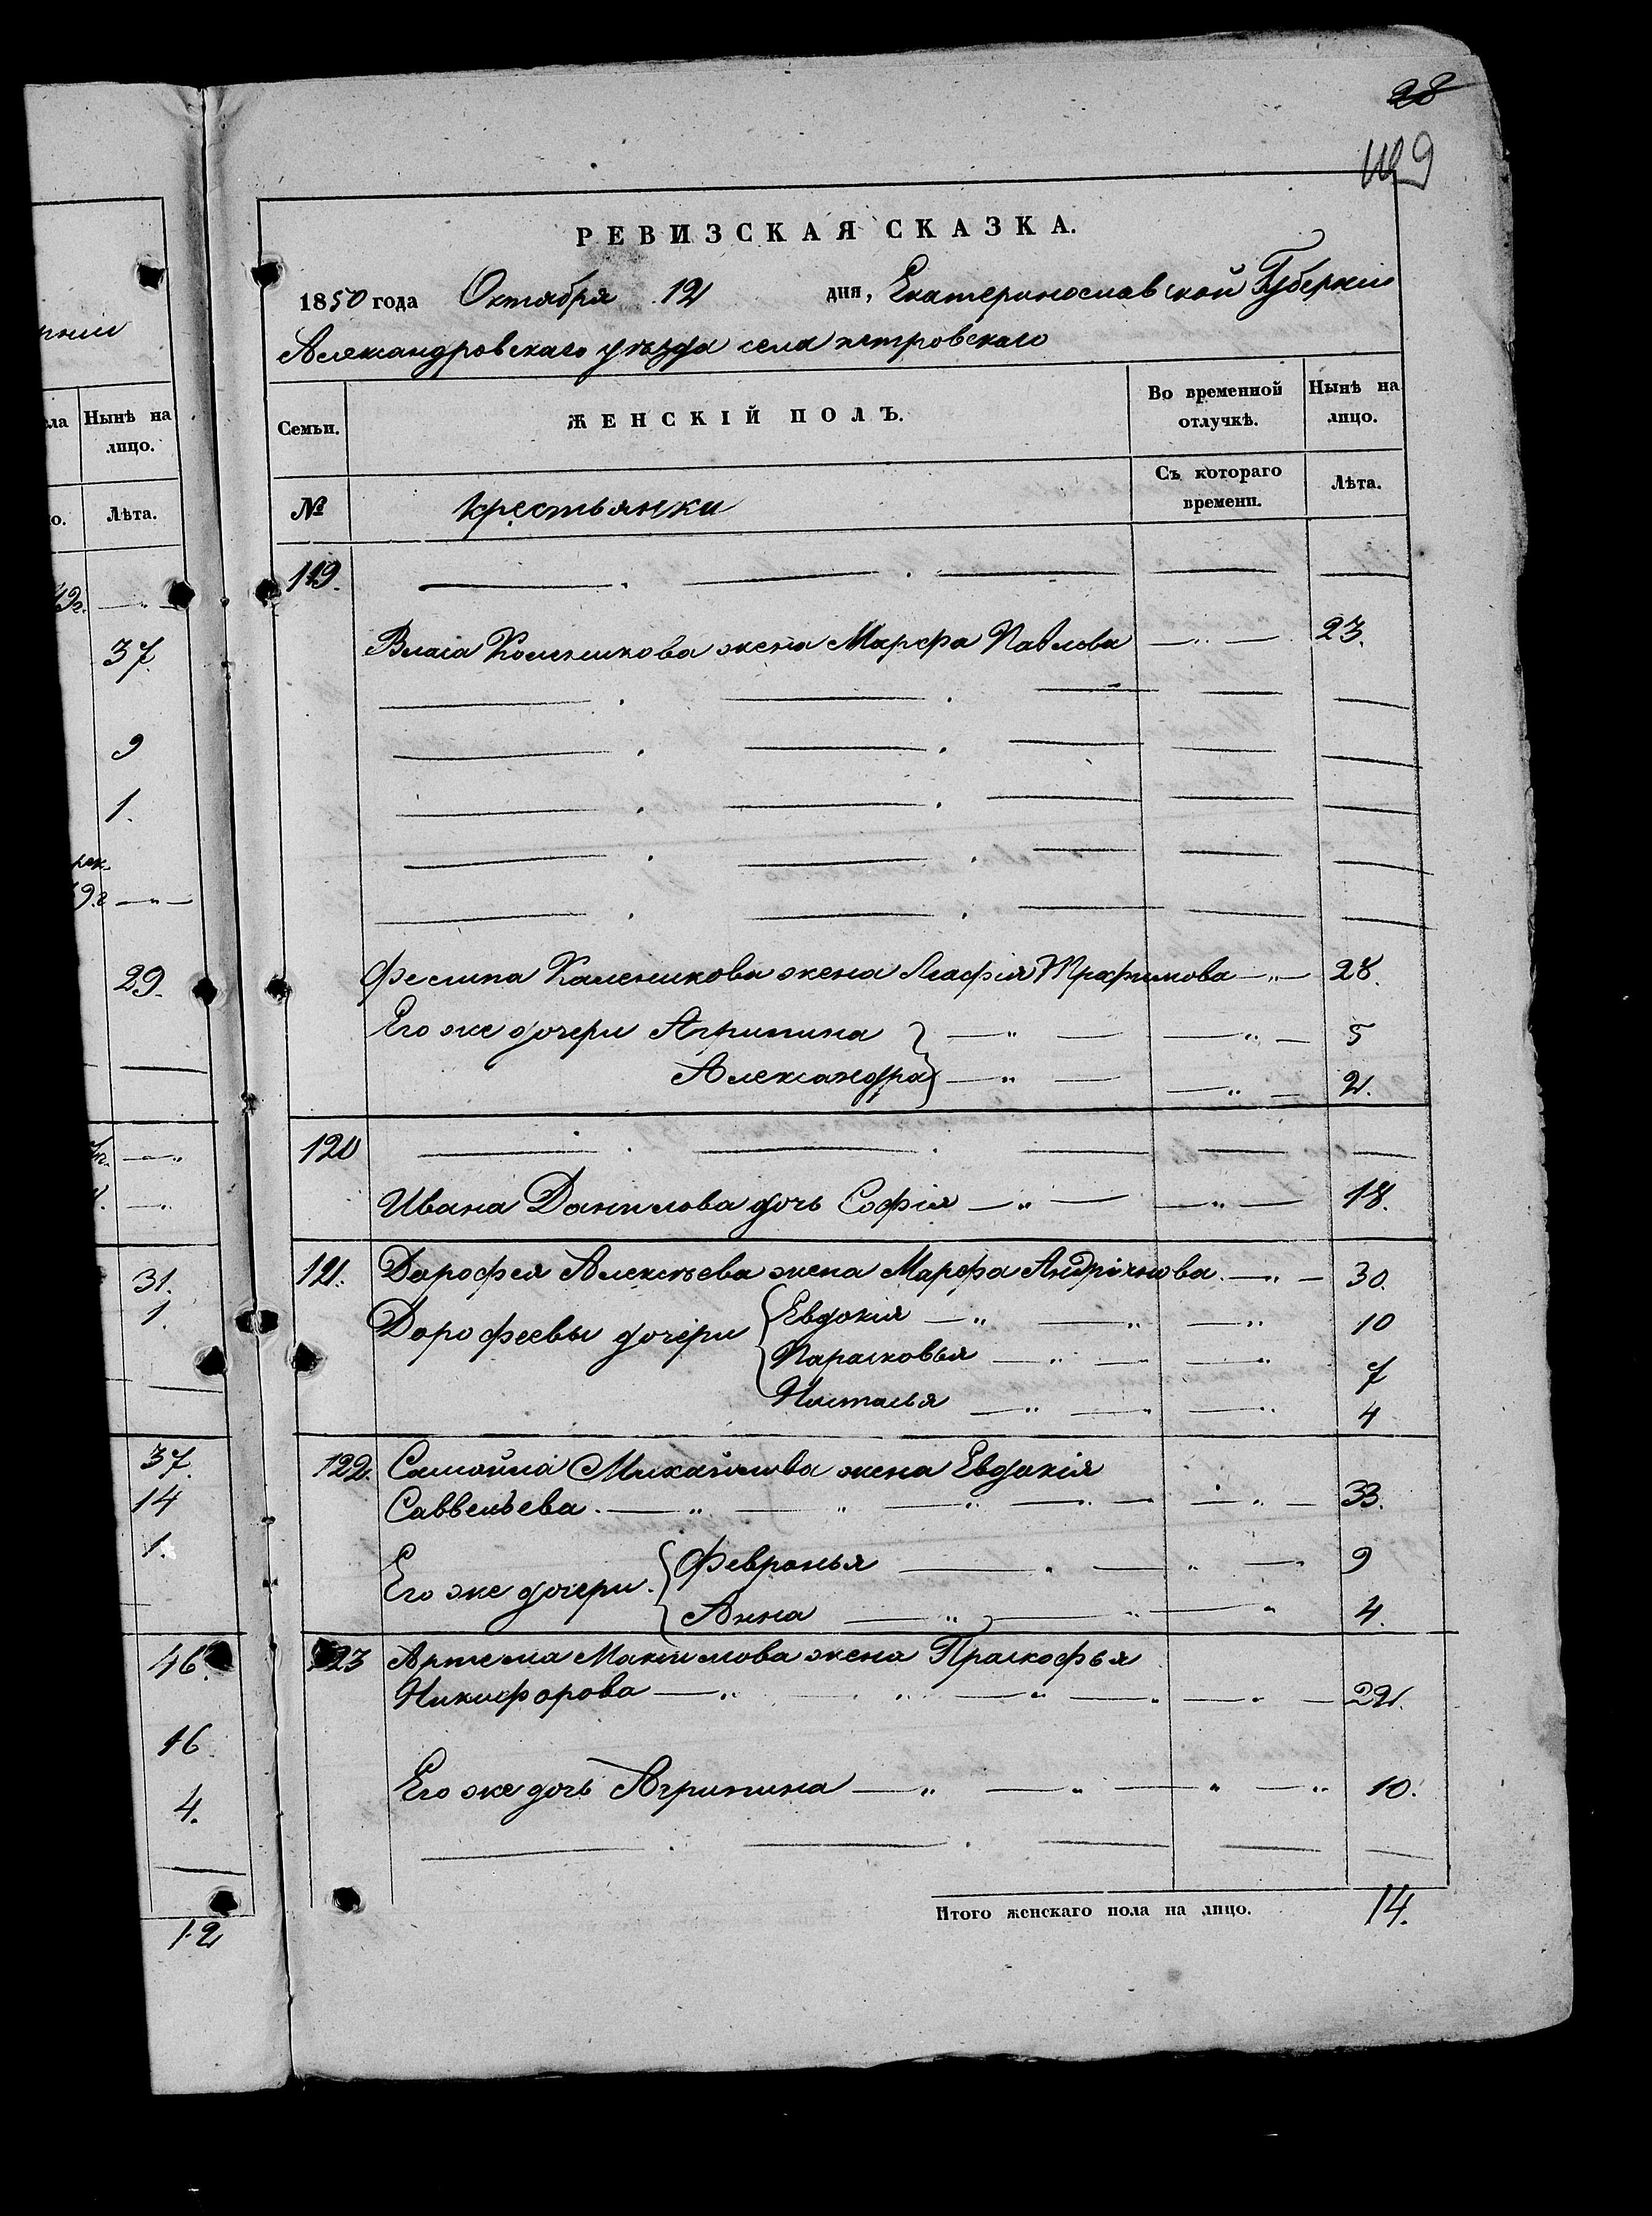 28
119
РЕВИЗСКАЯ СКАЗКА.
1850 года Октября 12 дня, Екатеринославской Губерніи
Александровскаго уѣзда села петровскаго
Семьи. ЖЕНСКІЙ ПОЛЪ. Во временной отлучкѣ. Нынѣ на лицо.
№ крестьянки Съ котораго времени. Лѣта.
119.
Власа Коленикова жена Марфа Павлова 23.
Феслипа Каленикова жена Агафія Трафимова 28.
Его же дочери Агрипина 5
Александра 2.
120
Ивана Данилова дочь Софія 18.
121. Дорофея Алексѣева жена Марфа Андріянова 30.
Дорофеевы дочери Евдокія 10
Парасковья 7
Наталья 4
122. Самойла Михайлова жена Евдокія
Саввельева 33.
Его же дочери Февронья 9
Анна 4.
123 Артема Максимова жена Праскофья
Никифорова 22.
Его же дочь Агрипина 10.
Итого женскаго пола на лицо. 14.
рніи
ела Нынѣ на лицо.
о. Лѣта.
49г.
37.
9
1.
рек.
9.г
29.
31.
1.
37.
14
1.
46.
16.
4.
12